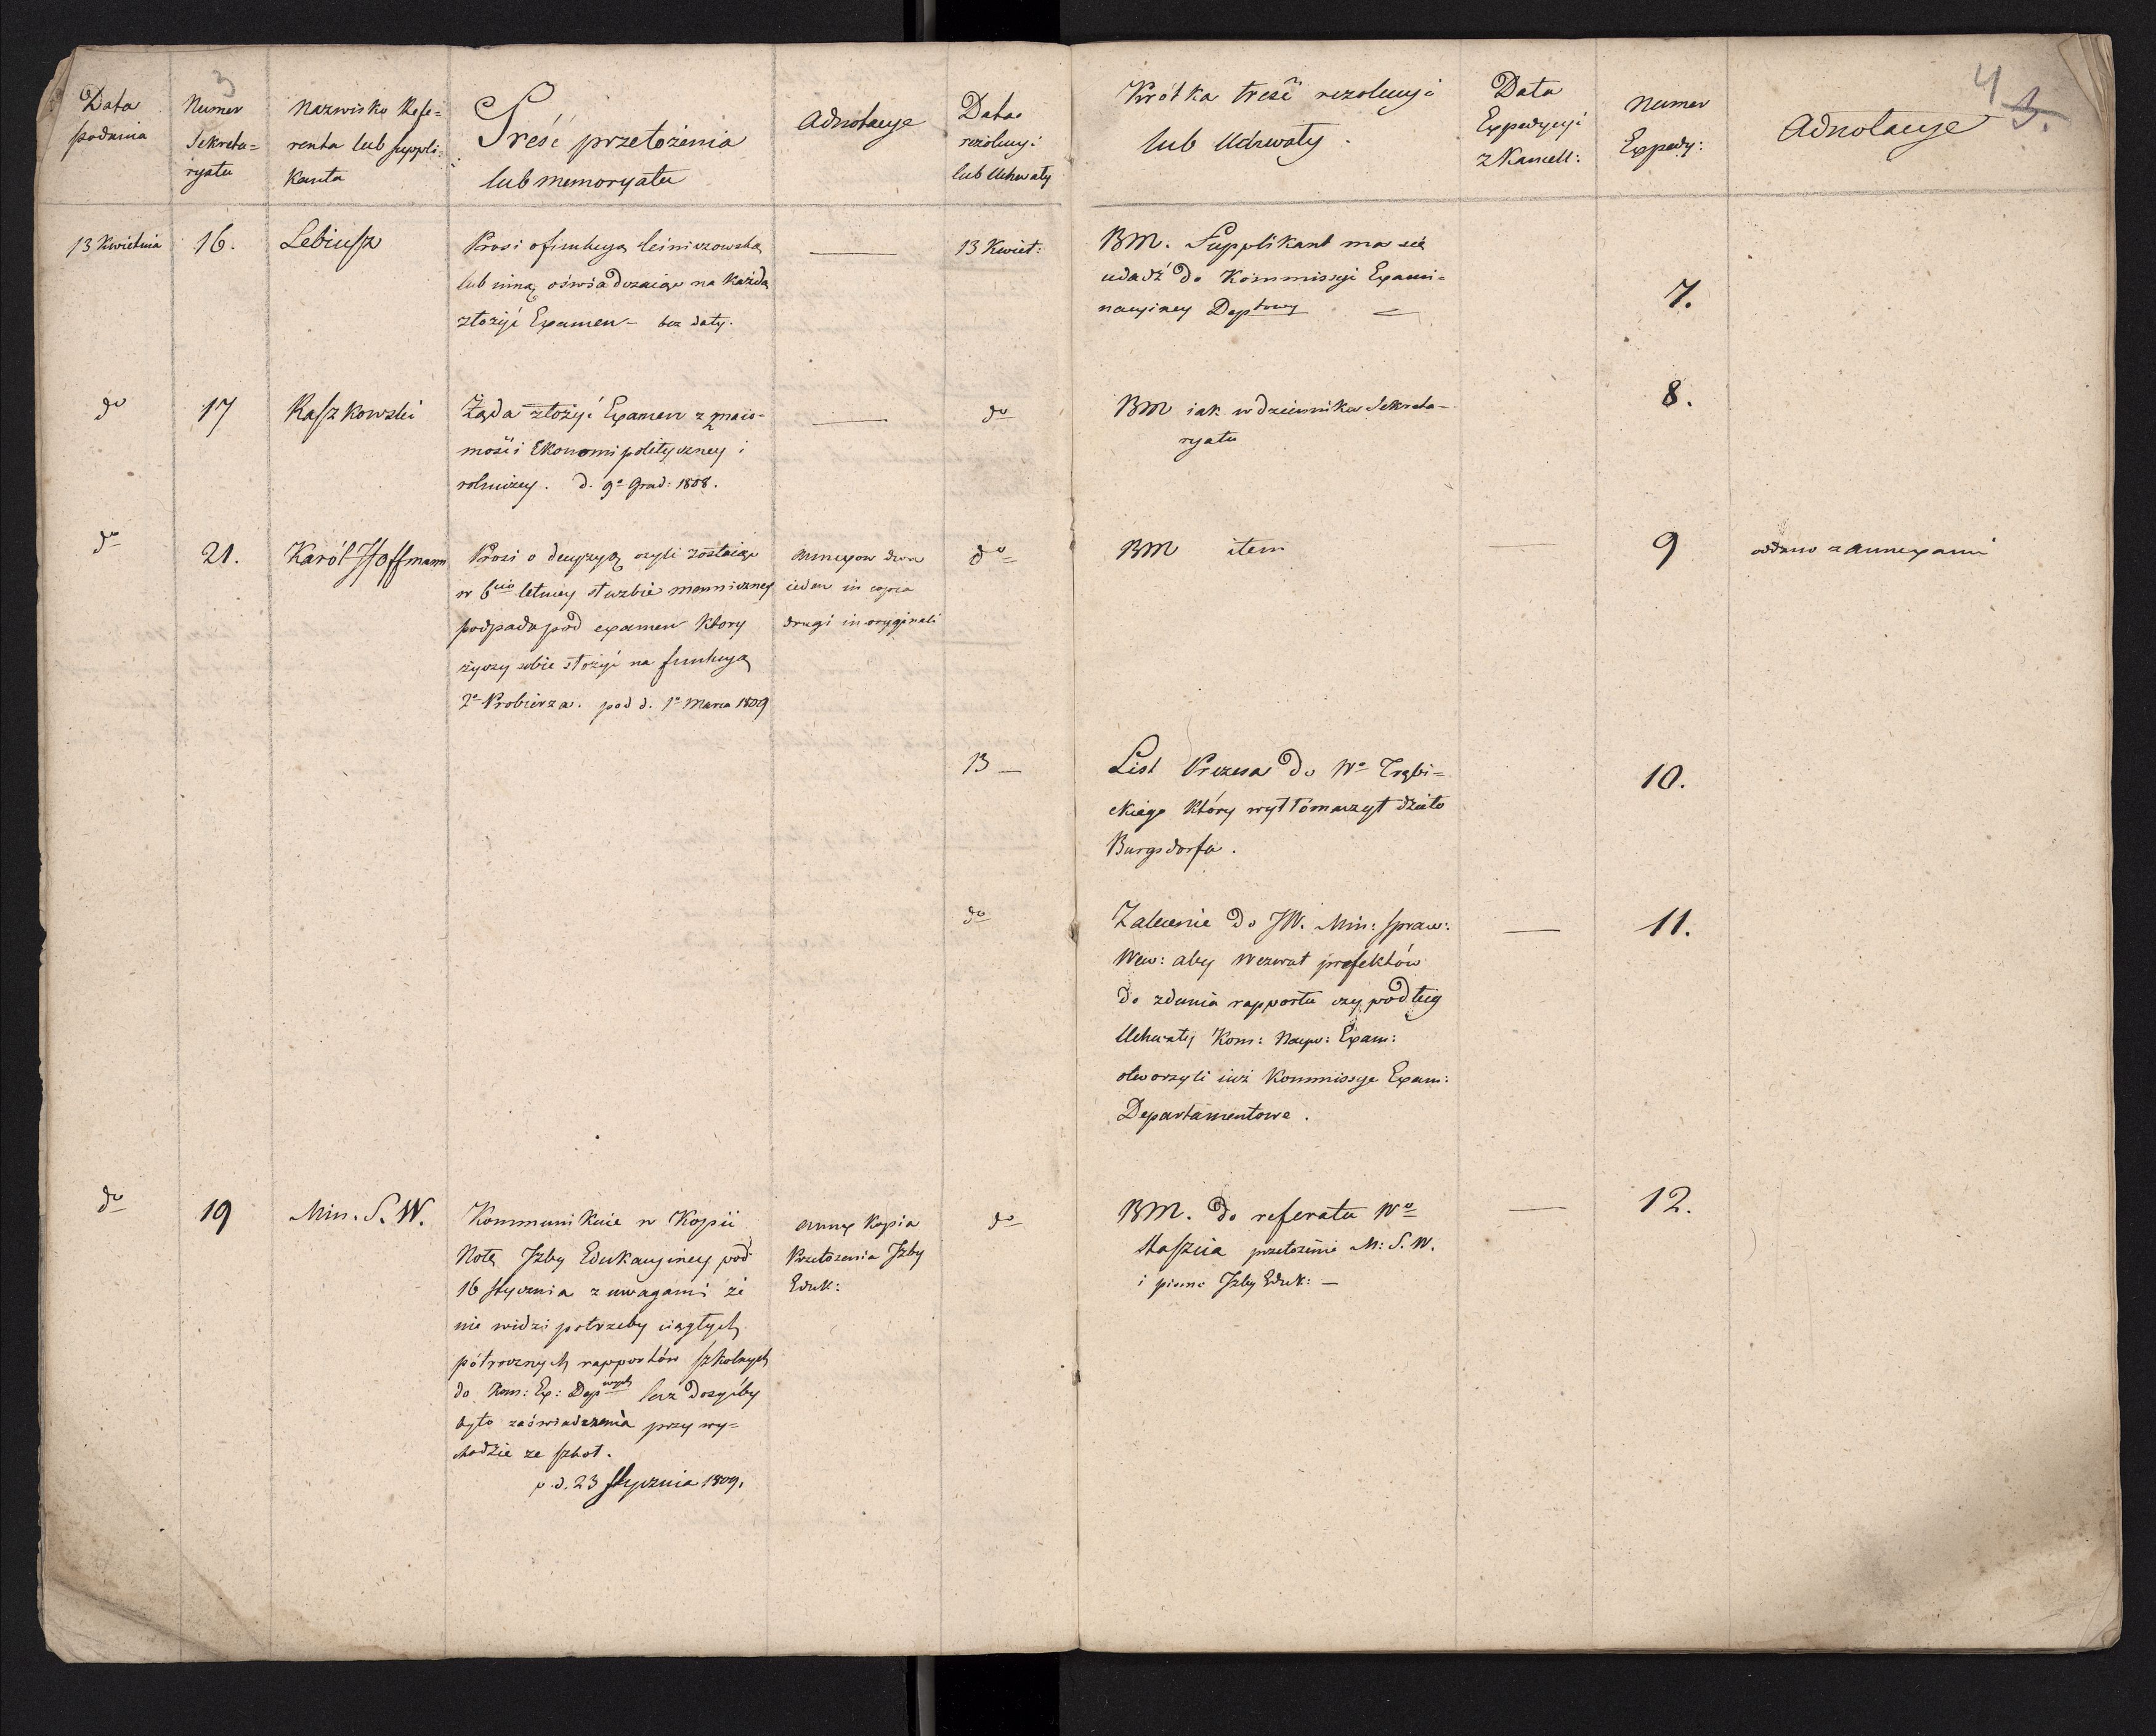 3
4
3.
Data
podania
Numer
Sekreta=
ryatu
Nazwisko Refe=
renta lub suppli:
kanta
Treść przełożenia
lub memoryału
Adnotacye
Data
rezolucyi
lub Uchwały
Krótka treść rezolucyi
lub Uchwały.
Data
Expedycyi
z Kancell:
Numer
Expedy:
Adnotacye
13 Kwietnia
16.
Lebiusz
Prosi o funkcyą leśniczowską
lub inną oświadczaiąc na każdą
złożyć Examen – bez daty.
13 Kwiet:
BM. Supplikant ma się
udadź do Kommissyi Exami-
nacyiney Deptowey
7.
do
17
Raszkowski
Żąda złożyć Examen z znaio-
mości Ekonomi polityczney i
rolniczey. d. 9o Grud: 1808.
do
BM iak w dzienniku Sekreta-
ryatu
8.
do
21.
Karól Hoffmann
Prosi o decyzyą czyli zostaiąc
w 6cio letniey służbie menniczney
podpada pod examen który
życzy sobie złożyć na funkcyą
2o Probierza. pod d. 1o Marca 1809
Annexow dwa
ieden in copia
drugi in oryginali
do
BM item
9
oddano z annexami
13 –
List Prezesa do Wo Trąbi=
ckiego który wytłómaczył dzieło
Burgsdorfa.
10.
do
Zalecenie do JW. Min: Spraw:
Wew: aby wezwał prefektów
do zdania rapportu czy podług
Uchwały Kom: Naywː Exam:
otworzyli iuż Kommissye Exam:
Departamentowe.
11.
do
19
Min. S. W.
Kommunikuie w Kopii
Notę Izby Edukacyiney pod
16 Stycznia z uwagami że
nie widzi potrzeby ciągłych
półrocznych rapportów szkolnych
do Kom: Ex: Depwych lecz dosyćby
było zaświadczenia przy wy=
chodzie ze szkoł.
p. d. 23 Stycznia 1809.
Annex Kopia
Przełożenia Izby
Eduk:
do
BM. do referatu Wo
Staszica przełożenie M: S. W.
i pismo Izby Eduk: –
12.